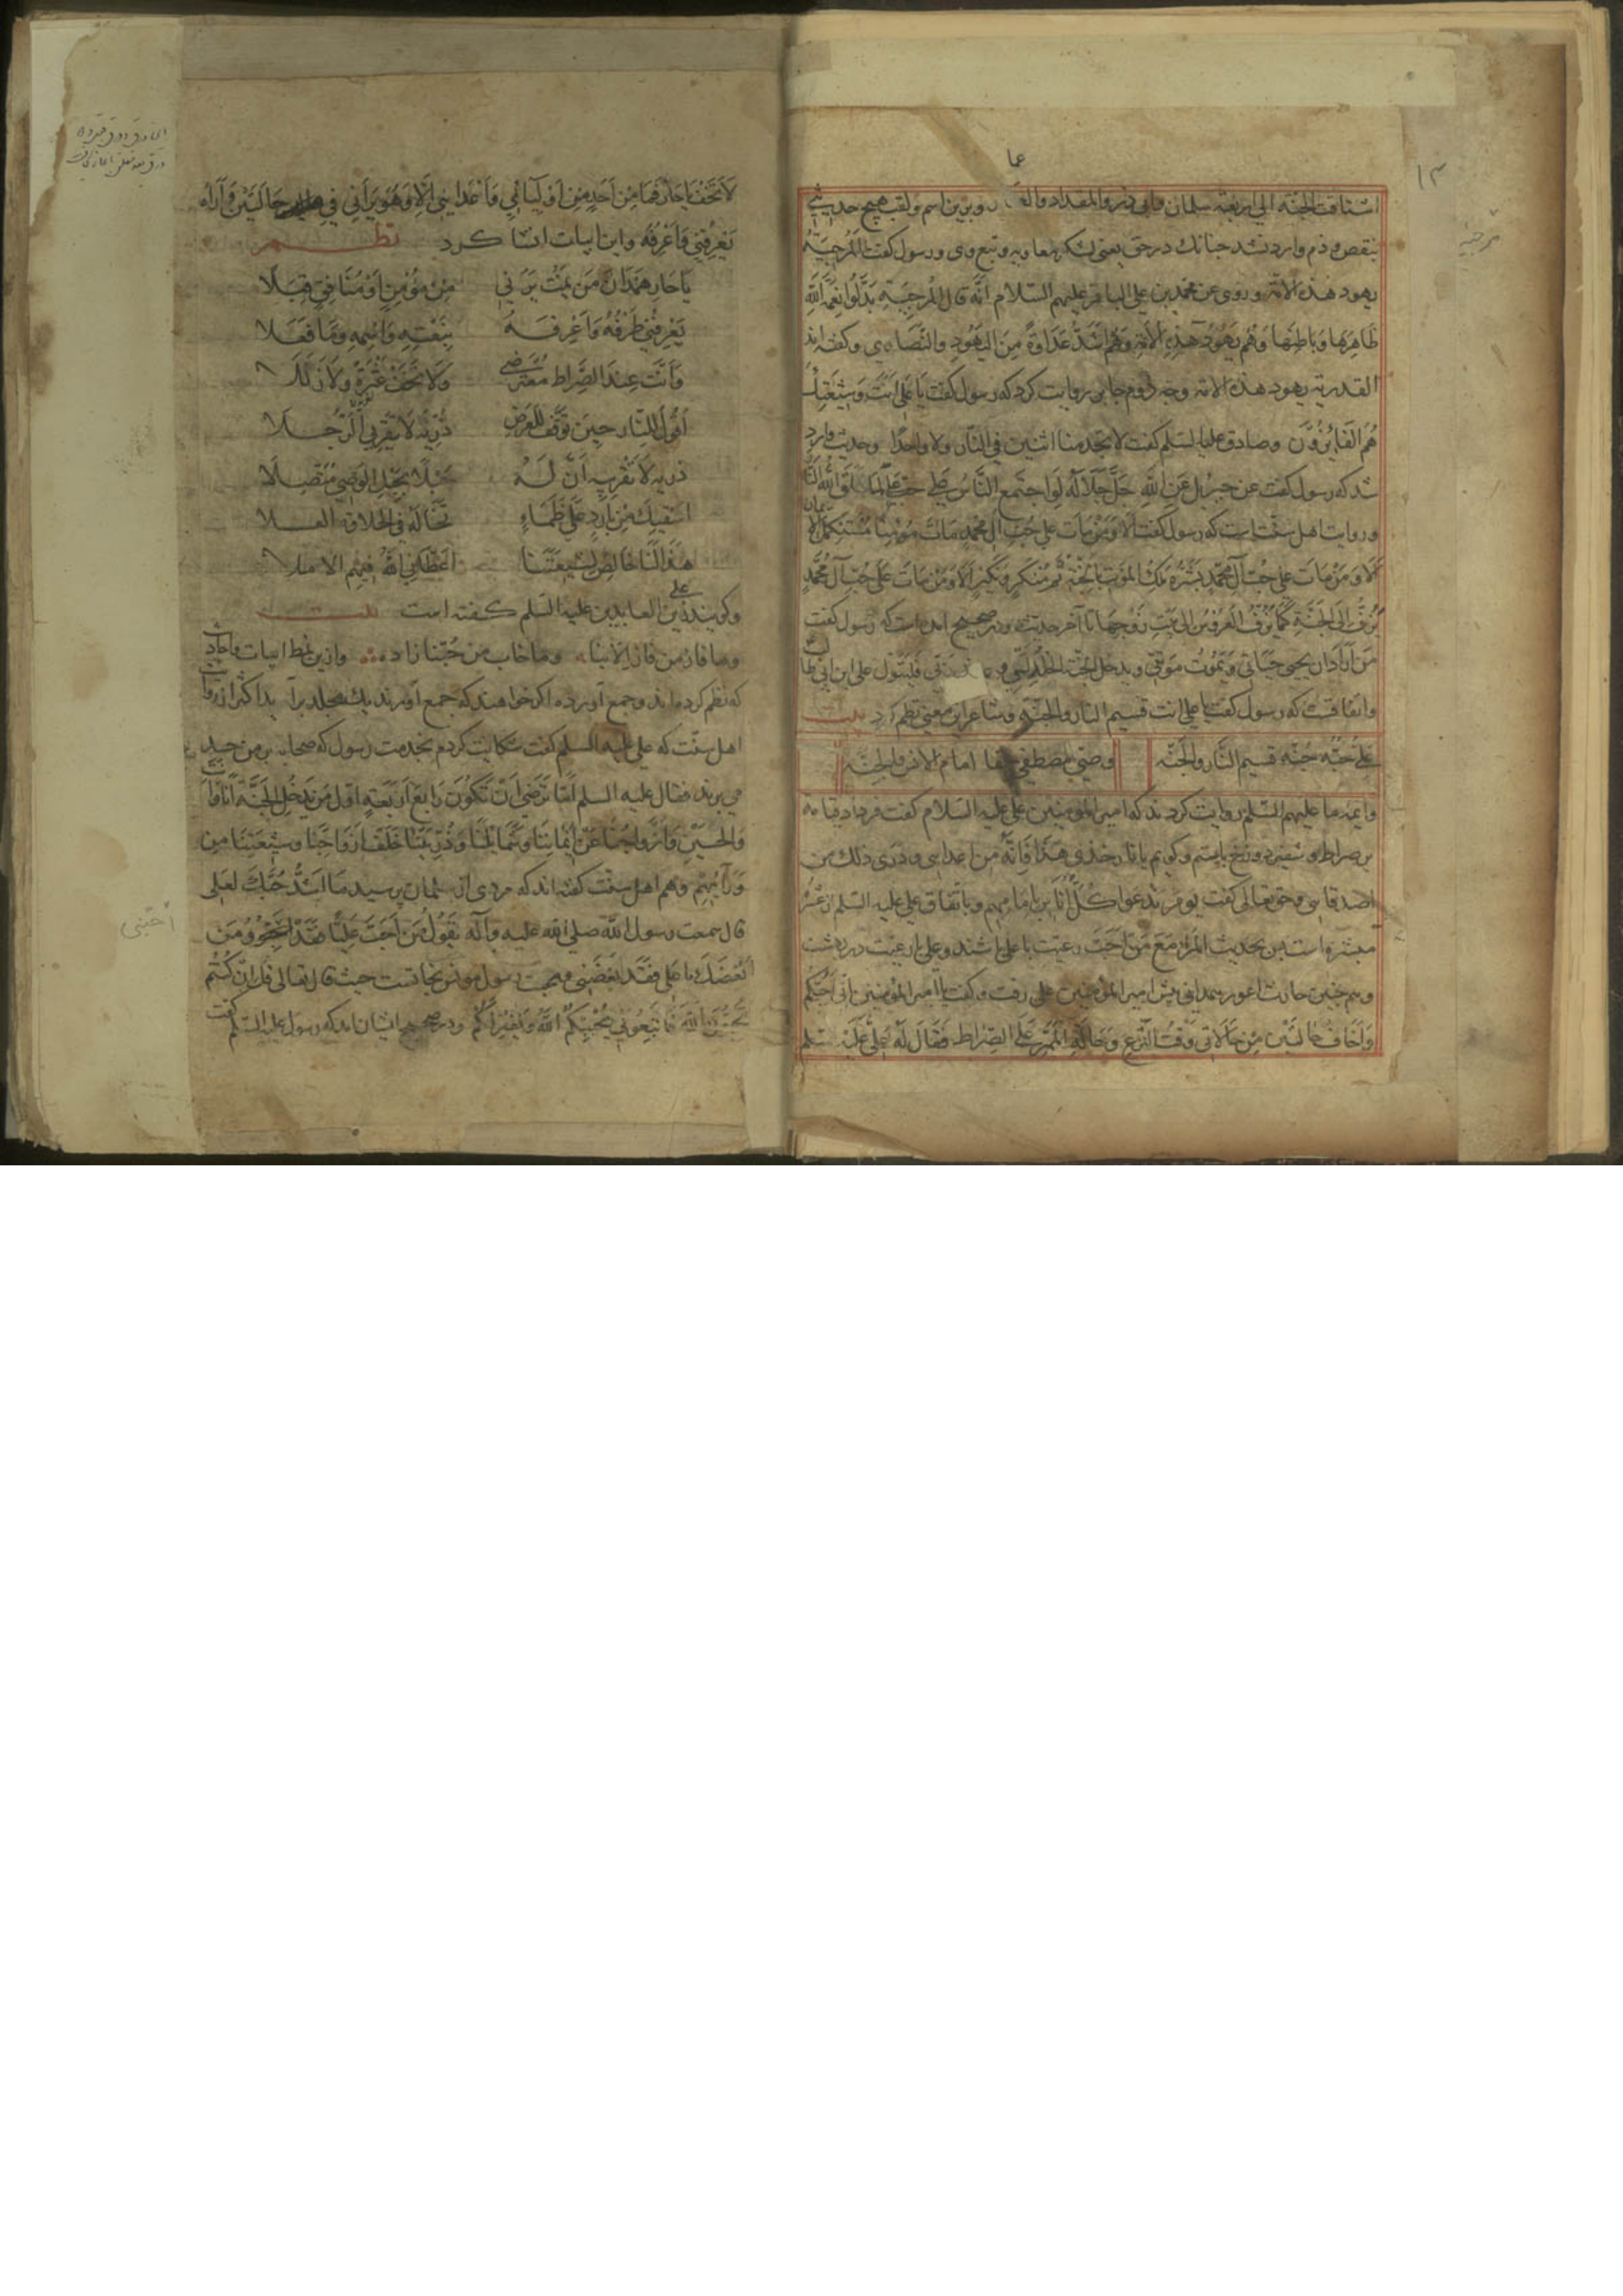 ۱۳
عما
اشتاقت الجنة الی اربعة سلمان وابی ذر والمقداد والعـ وبرین اسم ولقب هیچ حدیثی
بنقص وذم وارد نشد چنانك در حق یعنی لشکر معاویه وتبع وی ورسول کفت المرجیّة
یهود هذه الامة وروی عن محمّد بن علی الباقر علیهم السّلام انّه قال المرجیّة بدّلوا نعمة الله
ظاهرها وباطنها وهم یهود هذه الامّة وهم اشدّ عداوة من الیهود والنّصاری وکفته اند
القدریة یهود هذه الامة وجه دوم جابر روایت کرد که رسول کفت یا علی انت وشیعتك
هم الفایزون وصادق علیه السلم کفت لا تجد منا اثنین فی النّار ولا واحدا وحدیث وارد
شد که رسول کفت عن جبریل عن الله جلّ جلاله لو اجتمع النّاس علی حبّ علی لما خلق الله النّار
وروایت اهل سنّت است که رسول کفت الا ومن مات علی حبّ آل محمّد مات مؤمنا مستکمل الایمان
الا ومن مات علی حبّ آل محمّد بشّره ملك الموت بالجنّة ثمّ منکر ونکیر الا ومن مات علی حبّ آل محمّد
یزفّ الی الجنّة کما یزفّ العروس الی بیت زوجها تا آخر حدیث ودر صحیح آمده است که رسول کفت
من اراد ان یحیی حیاتی ویموت موتتی ویدخل الجنّة الخلد الّتی وعد فلیتولّ علی ابن ابی طالب
واتّفاقست که رسول کفت یا علی انت قسیم النّار والجنّة وشاعر این معنی نظم کرد بیت
علیّ حبّه جنّه قسیم النّار والجَنّه وصیّ المصطفی حقّا امام الانس والجِنّه
وایمّه ما علیهم السّلم روایت کردند که امیر المؤمنین علی علیه السّلام کفت فردا در قیامة
بر صراط وشفیر دوزخ بایستم وکویم یا نار خذی هذا فانّه من اعدایی وذری ذلك من
اصدقایی وحق تعالی کفت یوم ندعوا کلّ اناس بامامهم وباتّفاق علی علیه السّلم از عشرۀ
مبشّره است پس بحدیث المرء مع من احبّ رعیت با علی باشند وعلی با رعیت در بهشت
وهم چنین حارث اعور همدانی پیش امیر المؤمنین علی رفت وکفت یا امیر المؤمنین انّی احبّکم
واخاف حالتین من حالاتی وقت النّزع وحالة الممرّ علی الصّراط فقال له علی علیه السلم
مرجیّه
لا تخف یا حار فما من احد من اولیائی واعدایی الّا وهو یرانی فی حالتین واراه
یعرفنی واعرفه واین ابیات انشا کرد نظم
یا حار همدان من یمت یرنی من مؤمن او منافق قبلا
یعرفنی طرفه واعرفه بنعته واسمه وما فعلا
وانت عند الصّراط معترضی ولا تخف عثرة ولا زللا
اقول للنّار حین توقف للعرض ذریه لا تقربی الرّجلا
ذریه لا تقربیه انّ له حبلا بحبل الوصیّ متّصلا
اسقیك من بارد علی ظماء تخاله فی الحلاوة العسلا
هذا لنا خالص لشیعتنا اعطانی الله فیهم الاملا
وکویند زین العابدین علی علیه السّلم کفته است بیت
وما فاز من فاز الّا بنا وما خاب من حبّنا زاده وازین نمط ابیات واحادیث
که نظم کرده اند وجمع آورده اکر خواهند که جمع آورند یك مجلد برآید اکبر از روایات
اهل سنّت که علی علیه السلم کفت شکایت کردم بخدمت رسول که صحابه بر من حسد
می برند فقال علیه السلم امّا ترضی ان تکون رابع اربعة اوّل من یدخل الجنّة انا وانت
والحسین وازواجنا عن ایماننا وشمایلنا وذرّیتنا خلف ازواجنا وشیعتنا من
ورآیهم وهم اهل سنّت کفته اند که مردی از سلمان پرسید ما اشدّ حبّك لعلی
قال سمعت رسول الله صلی الله علیه وآله یقول من احبّ علیّا فقد احبّنی ومن
ابغضك یا علی فقد ابغضنی ومحبت رسول موجب نجاتست حیث قال تعالی قل ان کنتم
تحبّون الله فاتّبعونی یحببکم الله ویغفر لکم ودر صحیح ایشان آمد که رسول علیه السّلم کفت
احبّنی